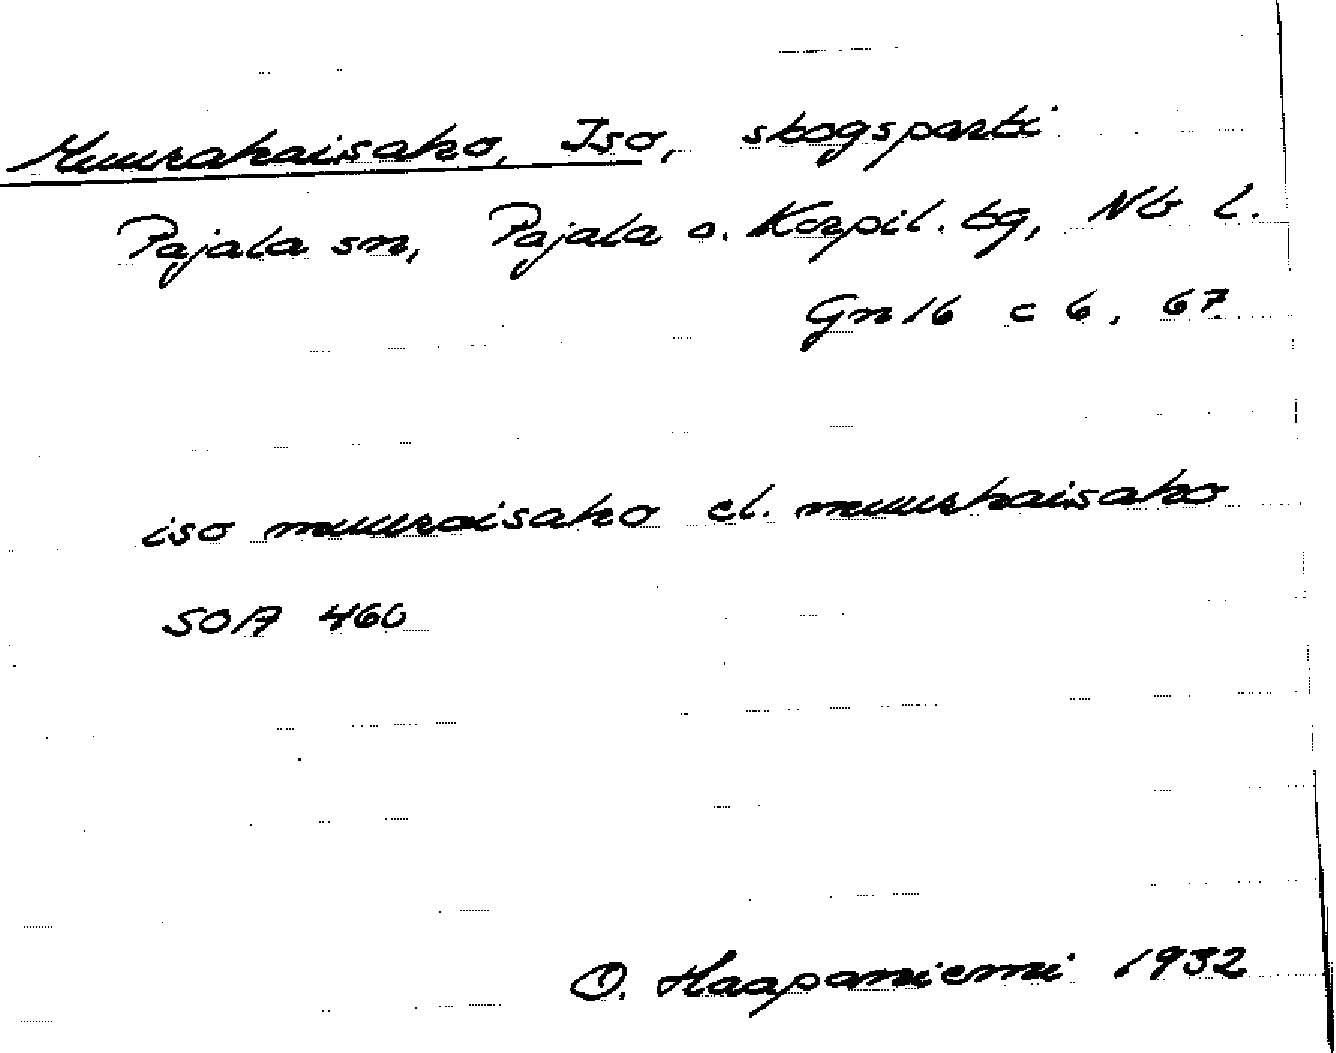 Muurahaisaho, Iso, skogsparti
Pajala sn, Pajala o. Korpil. tg, Nb l.
Gn 16 c 6, 67
iso muuraisaho el. muurhaisaho
SOA 460
O. Haapaniemi 1932